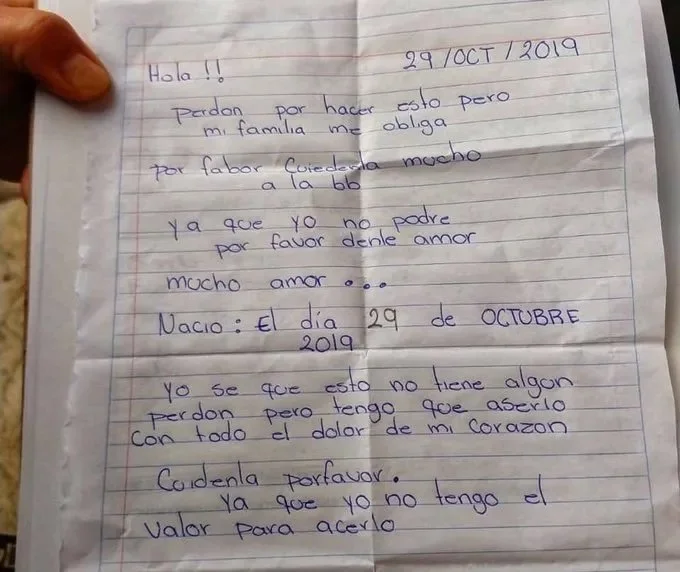 29/OCT/2019
Hola !!
Perdon por hacer esto pero
mi familia me obliga
por fabor Cuiedenla mucho
a la bb
ya que yo no podre
por favor denle amor
mucho amor ...
Nacio: El día 29 de OCTUBRE
2019
yo se que esto no tiene algon
perdon pero tengo que aserlo
con todo el dolor de mi corazon
Cuidenla porfavor.
ya que yo no tengo el
valor para acerlo